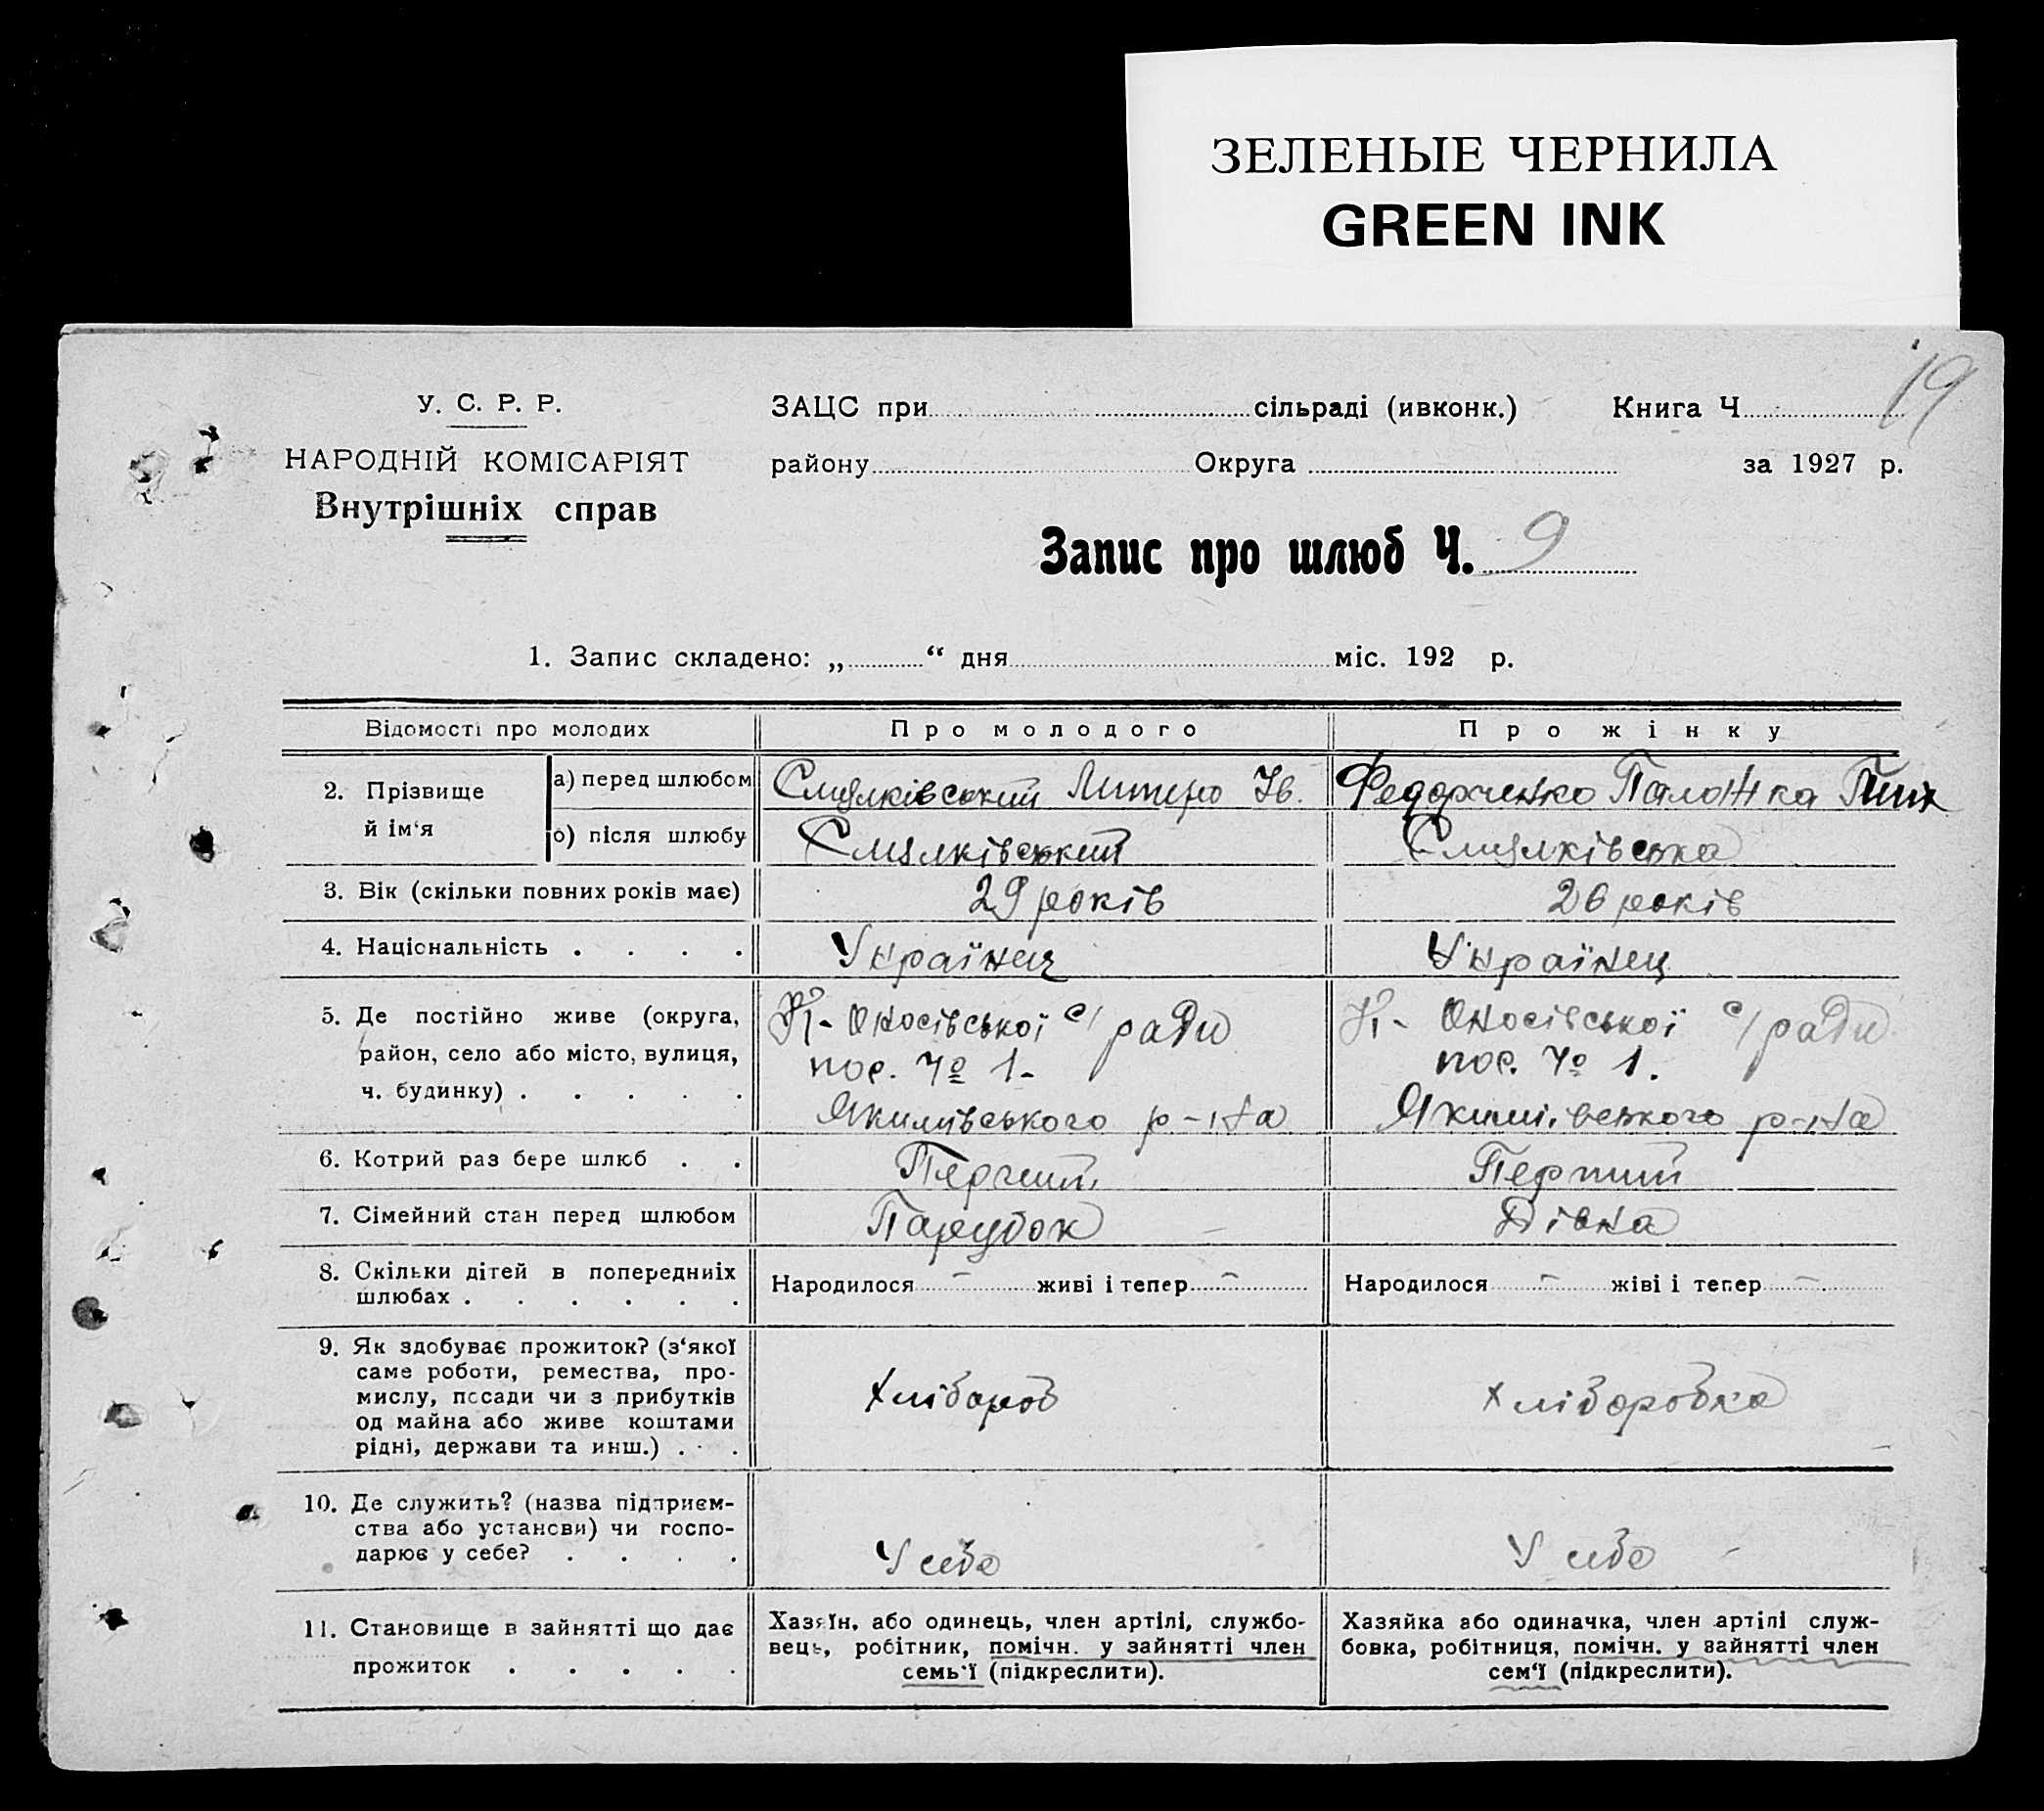 ЗЕЛЕНЫЕ ЧЕРНИЛА
GREEN INK
19
У. С. Р. Р.
НАРОДНІЙ КОМІСАРІЯТ
Внутрішніх справ
ЗАЦС при сільраді (ивконк.) Книга Ч
району Округа за 1927 р.
Запис про шлюб Ч. 9
1. Запис складено: „ “ дня міс. 192 р.
Відомості про молодих
Про молодого
Про жінку
2. Прізвище й ім'я
а) перед шлюбом
Дмитро Ів.
Федорченко Палажка
б) після шлюбу
3. Вік (скільки повних років має)
29 років
26 років
4. Національність
Українец
Українец
5. Де постійно живе (округа,
район, село або місто, вулиця,
ч. будинку)
Оносівської с/ради
пос. № 1-
Якимівського р-на
Оносівської с/ради
пос. № 1.
Якимівського р-на
6. Котрий раз бере шлюб
Перший
Перший
7. Сімейний стан перед шлюбом
Парубок
Дівка
8. Скільки дітей в попередниіх
шлюбах
Народилося - живі і тепер -
Народилося - жіві і тепер -
9. Як здобуває прожиток? (з‘якої
саме роботи, ремества, про-
мислу, посади чи з прибутків
од майна або живе коштами
рідні, держави та инш.)
Хлібороб
Хліборобка
10. Де служить? (назва підприєм-
ства або установи) чи госпо-
дарює у себе?
У себе
У себе
11. Становище в зайнятті що дає
прожиток
Хазяїн, або одинець, член артілі, службо-
вець, робітник, помічн. у зайнятті член
семь'ї (підкреслити).
Хазяйка або одиначка, член артілі служ-
бовка, робітниця, помічн. у зайнятті член
сем‘ї (підкреслити).